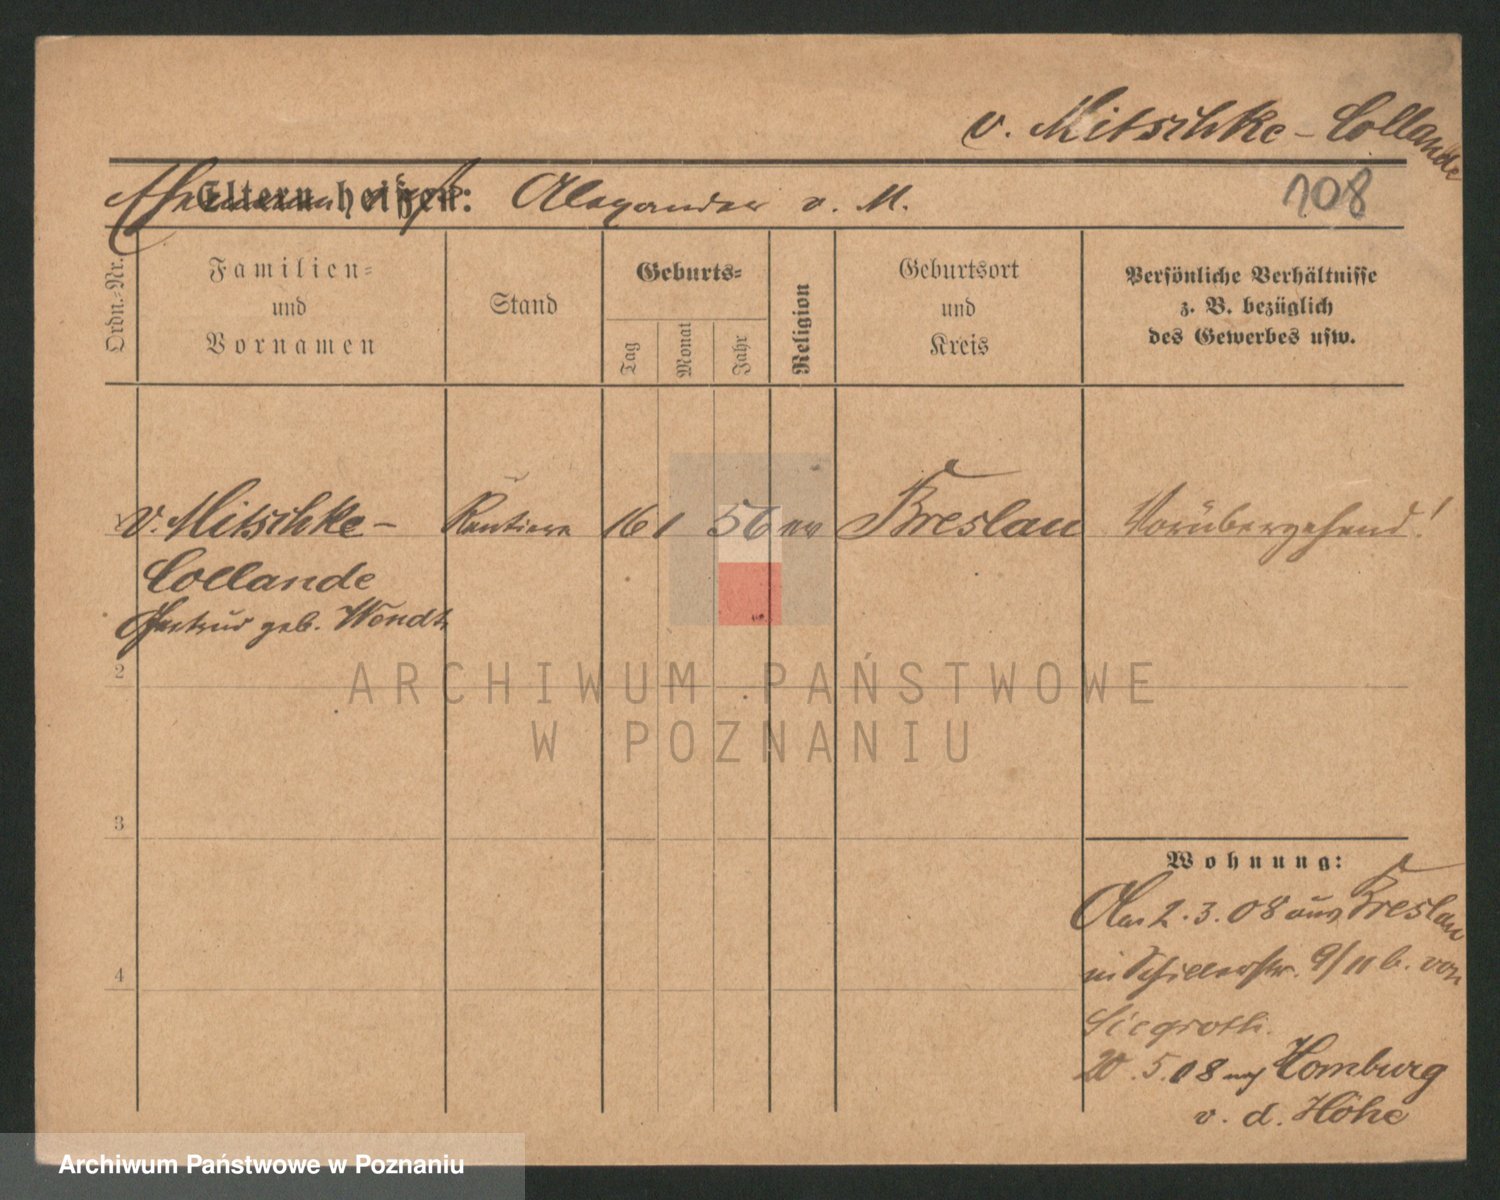 v. Mitschke-Collande
Eltern heißen:
Ehemann Alexander v. M.
108
Ordn.-Nr.
Familien-
und
Vornamen
Stand
Geburts-
Tag
Monat
Jahr
Religion
Geburtsort
und
Kreis
Persönliche Verhältnisse
z. B. bezüglich
des Gewerbes usw.
v. Mitschke- Rentiere 16 1 56 ev Breslau Vorübergehend!
Collande
Gertrud geb. Wendt
2
3
4
Wohnung:
Am 2.3.08 aus Breslau
in Schillerstr. 9/II b. von
Siegroth.
20.5.08 nach Homburg
v. d. Höhe
ARCHIWUM PAŃSTWOWE
W POZNANIU
Archiwum Państwowe w Poznaniu